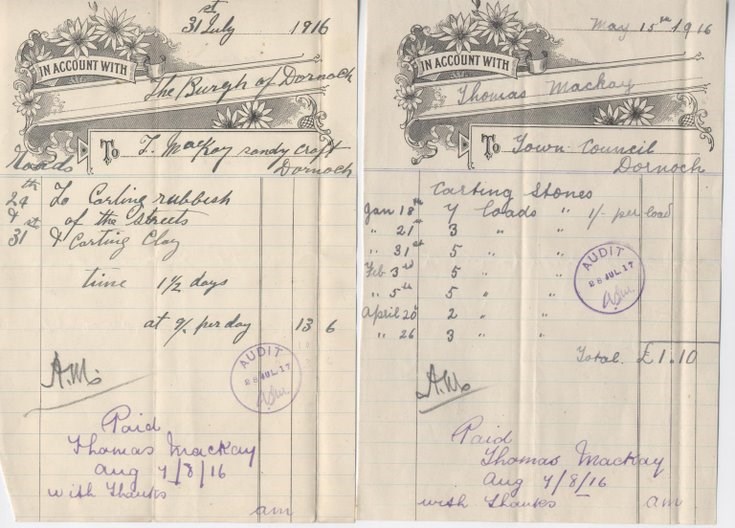 31st July 1916
IN ACCOUNT WITH
The Burgh of Dornoch
To T. MacKay sandy Croft
Dornoch
Roads
29th To Carting rubbish
& of the streets
31st & Carting Clay
time 1½ days
at 9/- per day 13 6
A.M.
AUDIT
28 JUL. 17
Paid
Thomas MacKay
Aug 7/8/16
with Thanks
am
May 15th 1916
IN ACCOUNT WITH
Thomas Mackay
To Town Council
Dornoch
Carting Stones
Jan 18th 7 loads " 1/- per load
" 21st 3 " "
" 31st 5 " "
Feb 3rd 5 " "
" 5th 5 " "
April 20 2 " "
" 26 3 " "
AUDIT
28 JUL. 17
Total. £1.10
A.M.
Paid
Thomas Mackay
Aug 7/8/16
with Thanks
am